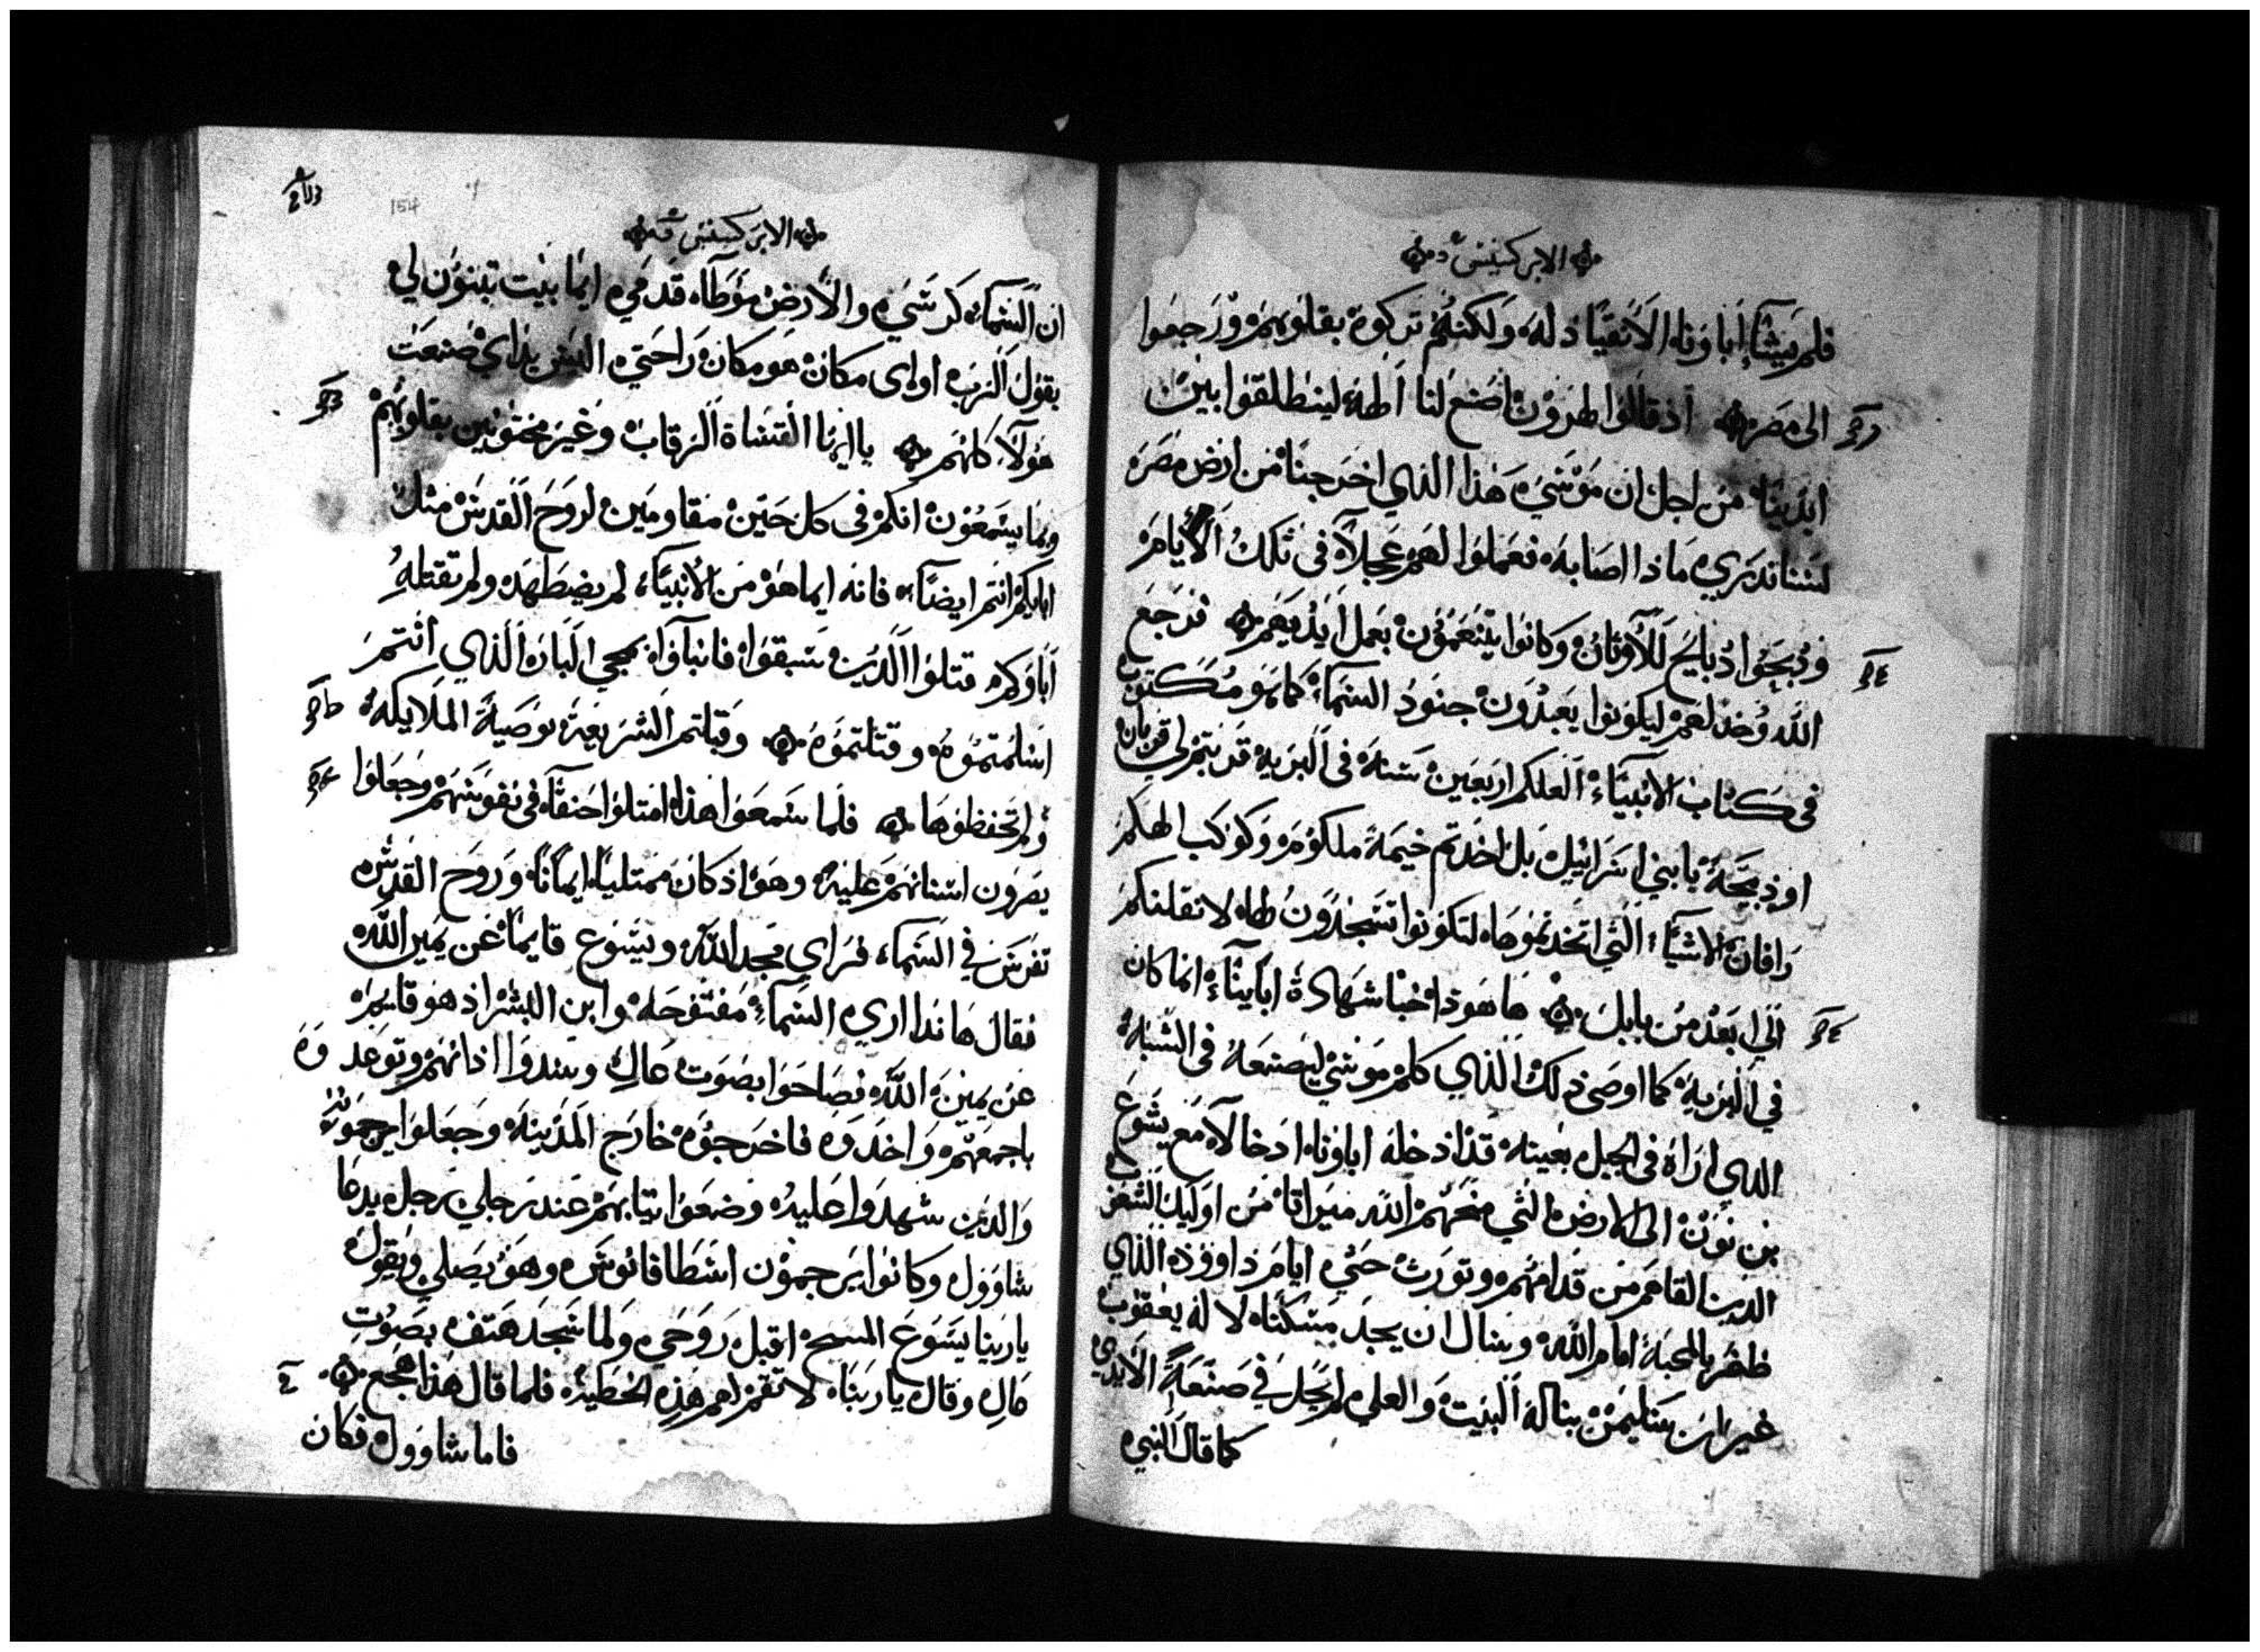 الابركسيس
فلم يشاء اباونا الانقياد له ولكنهم تركوه بقلوبهم ورجعوا
الى مصر اذ قالوا لهرون اصنع لنا الهة لينطلقوا بين
ايدينا من اجل ان موسي هذا الذي اخرجنا من ارض مصر
لسنا ندري ماذا اصابه فعملوا لهم عجلا في تلك الايام
ودبحوا دبايح للاوثان وكانوا يتنعمون بعمل ايديهم فرجع
الله وخذلهم ليكونوا يعبدون جنود السماء كما هو مكتوب
في كتاب الانبياء العلكم اربعين سنة في البرية قدمتم لي قربان
او ذبيحة يا بني اسرائيل بل اخدتم خيمة ملكوم وكوكب الهكم
رافان الاشياء التي اتخذتموها لتكونوا تسجدون لها لانقلنكم
الي ابعد من بابل ها هوذا خبا شهادة ابائنا انما كان
في البرية كما اوصى ذلك الذي كلم موسي ليصنعه في الشبه
الدي اراه في الجبل بعينه قد ادخله اباونا ادخالا مع يشوع
بن نون الى الارض التي منحهم الله ميراثا من اوليك الشعوب
الدين القاهم من قدامهم وتورث حتي ايام داوود الذي
ظفر بالمحبة امام الله وسال ان يجد مسكنا لاله يعقوب
غير ان سليمن بنا له البيت والعلي لم يحل في صنعة الايدي
كما قال النبي
154
الابركسيس
ان السماء كرسي والارض موطا قدمي ايما بيت تبنون لي
يقول الرب او اى مكان هو مكان راحتي اليس يداي صنعت
هولا كلهم يا ايها القساة الرقاب وغير مختونين بقلوبهم
وبما يسمعون انكم في كل حين مقاومين لروح القدس مثل
ابايكم انتم ايضا فانه ايما هو من الانبياء لم يضطهده ولم تقتله
اباوكم قتلوا الذين سبقوا فانباوا بمجي البار الذي انتم
اسلمتموه وقتلتموه وقبلتم الشريعة بوصية الملايكه
ولم تحفظوها فلما سمعوا هذا امتلوا حنقا في نفوسهم وجعلوا
يصرون اسنانهم عليه وهو اذ كان ممتليا ايمانا وروح القدس
تفرس في السماء فراي مجد الله ويسوع قايما عن يمين الله
فقال هاندا اري السماء مفتوحة وابن البشر اذ هو قايم
عن يمين الله فصاحوا بصوت عال وسدوا اذانهم وتوعدوه
باجمعهم واخدوه فاخرجوه خارج المدينة وجعلوا يرجمونه
والدين شهدوا عليه وضعوا تيابهم عند رجلي رجل يدعا
شاوول وكانوا يرجمون اسطافانوس وهو يصلي ويقول
يا ربنا يسوع المسيح اقبل روحي ولما سجد هتف بصوت
عال وقال يا ربنا لا تقم لهم هذه الخطية فلما قال هذا هجع
فاما شاوول فكان